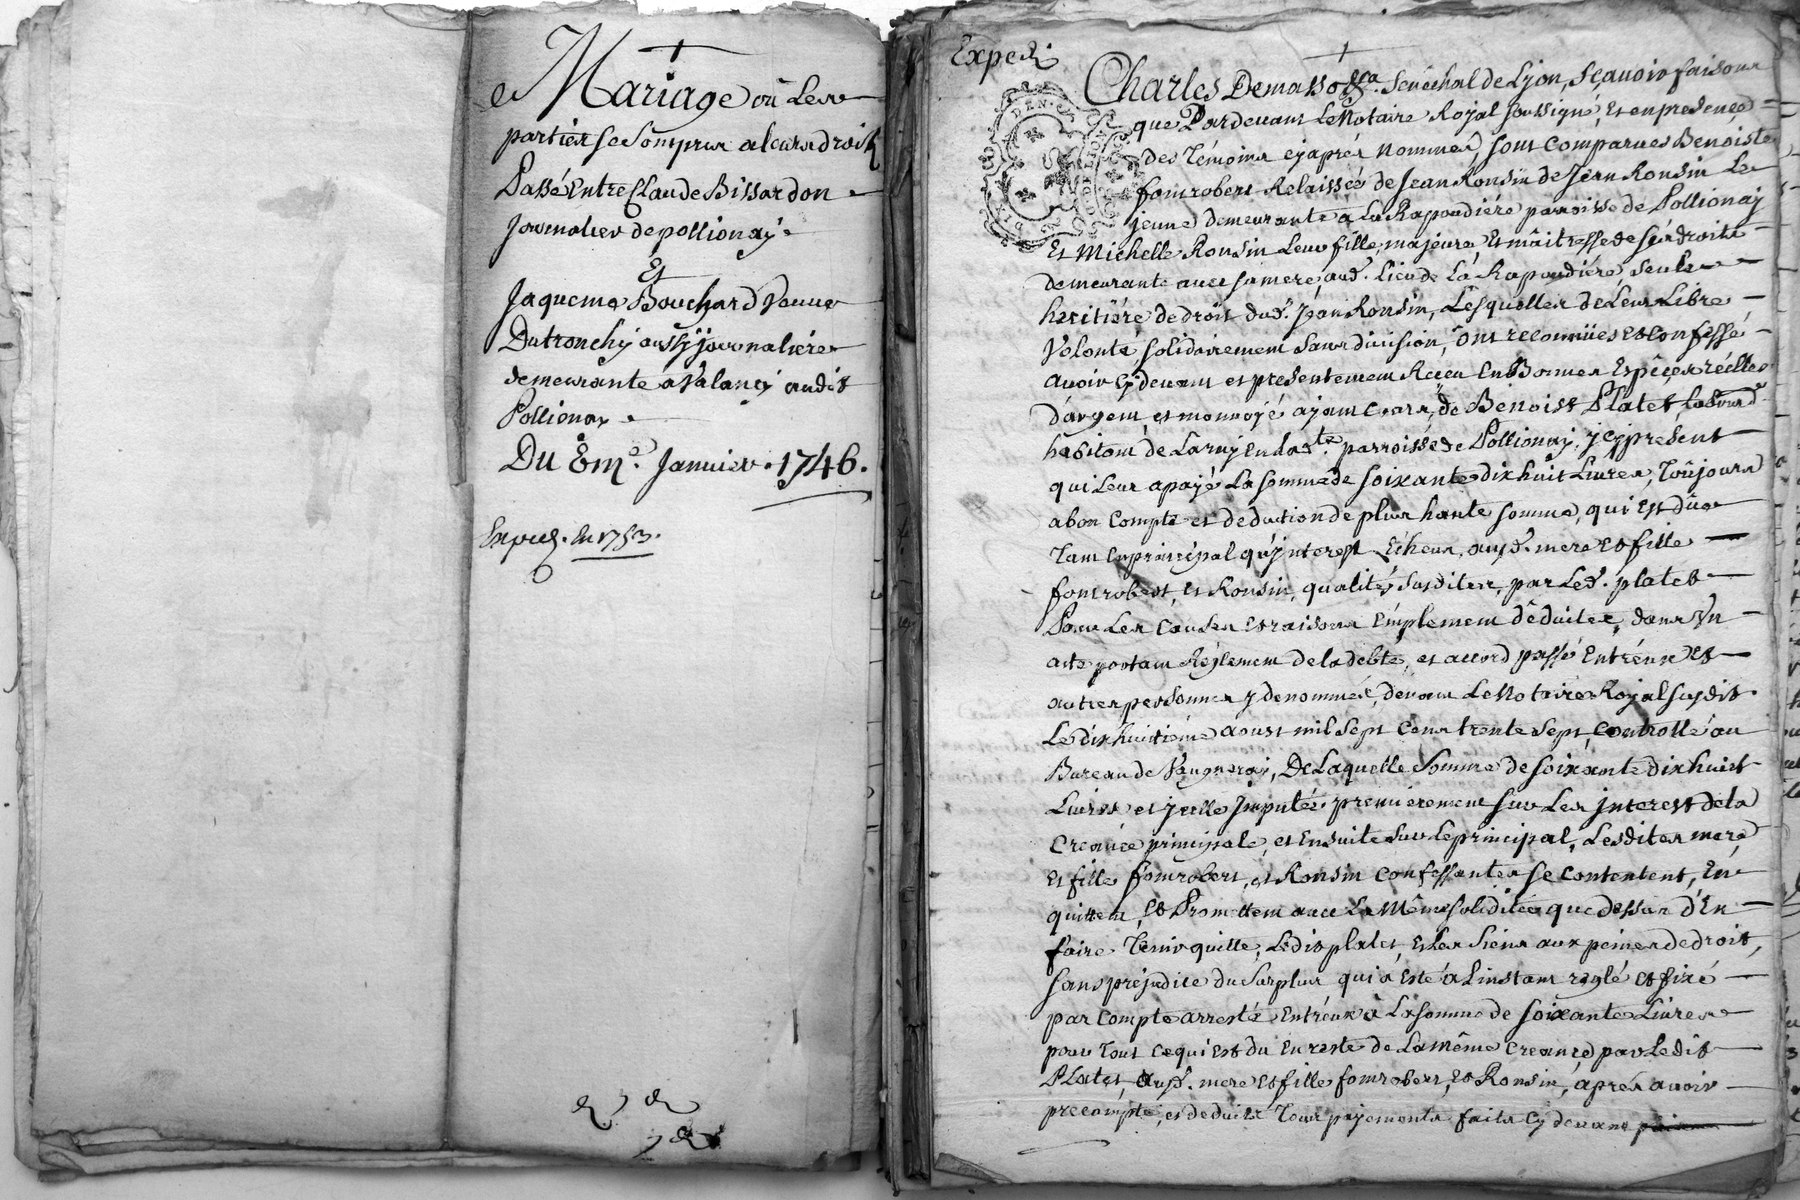 Mariage ou Les
parties se Sompris a leurs droits
Passé Entre Claude Bissardon
Journalier de pollionay
Et
Jaqueme Bouchard Veuve
Dutronchy aussy journaliere
demeurante a Valancy audit
Pollionay
Du 8me. Janvier 1746.
Exped. En 1753.
Exped.
Charles Demasso &ca. Senêchal de Lyon, Sçavoir faisons
que Pardevant Le Notaire Royal soussigné, Et en presence
des Témoins cy aprés nommés, sont Comparues Benoiste
fontrobert Relaissée de Jean Ronsin de Jean Ronsin Le
jeune demeurante a La Rapaudiére parroisse de Pollionay
Et Michelle Ronsin Leur fille, majeure Et maitresse de ses droits
demeurante avec sa mere, aud. Lieu de La Rapaudiére seule
heritière de droit dud. Jean Ronsin, Lesquelles de Leur Libre
Volonté, solidairement sans division, Ont reconnües et Confessé
avoir Cy devant et presentement Receu En Bonnes Espêces réelles
d'argent, et monnoyé ayant Cours, de Benoist Platet Laboureur
habitant de Laruy En lad.te parroisse de Pollionay, jcy present
qui Leur a payé La somme de soixante dix huit Livres, Toûjours
a bon Compte et deduction de plus haute somme, qui Est dûe
Tant En principal qu'jnterest Echeus, ausd. mere et fille
fontrobert, et Ronsin, qualités susdites, par Led. platet
Pour Les Causes et raisons Emplement dêduites, dans Vn
acte portant Reglement de la debte, et accord passé Entréux et
autres personnes y denommés, devant Le Notaire Royal susdit
Le dixhuitième aoust mil sept Cens trente sept, Controllé au
Bureau de Vaugneray, De Laquelle Somme de soixante dix huit
Livres et jcelle Jmputée premierement sur Les jnterest de la
Creance principale, et Ensuite sur le principal, Lesdites mere
Et fille fontrobert, et Ronsin Confessantes se Contentent, En
quittent, et Promettent avec La Même soliditée que dessus d'En
faire Tenir quitte, Ledit platet, et Les siens aux peines de droit,
sans prejudice du surplus qui a Esté a L'instant reglé et fixé
par Compte arresté Entréux a La somme de soixante Livres
pour Tout Ce qui Est du En reste de La même Creance par Ledit
Platet, ausd. mere et fille fontrobert, et Ronsin, aprés avoir
precompté, et deduit Tous payements faits Cy devant